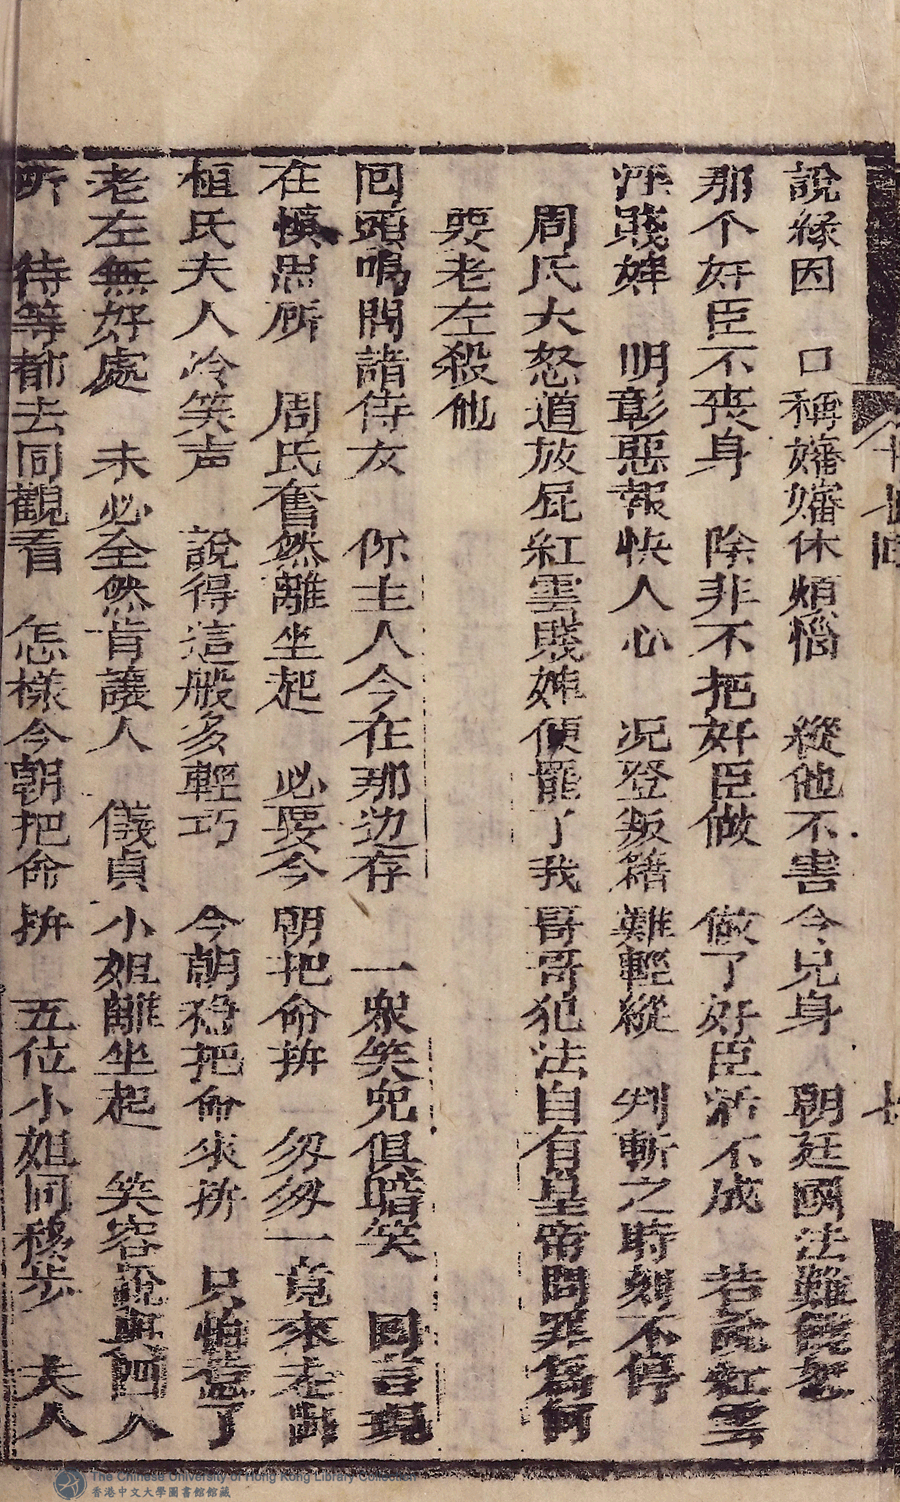 說緣因　口稱嬸嬸休煩惱　縱他不害今兄身　朝廷國法難饒
那个奸臣不喪身　除非不把奸臣做　做了奸臣活不成　若說紅雲
淫賤婢　明彰惡報快人心　况登叛籍難輕縱　判斬之時刻不停
周氏大怒道放屁紅雲賤婢便罷了我哥哥犯法自有皇帝問罪為何
要老左殺他
回頭嗚問諸侍女　你主人今在那边存　一眾笑皃俱暗笑　回言現
在慎思所　周氏奮然離坐起　必要今朝把命拚　匆匆一竟來走出
桓氏夫人冷笑声　說得這般多輕巧　今朝穩把命來拚　只怕差了
老左無好處　未必全然肯讓人　儀貞小姐離坐起　笑容說與四人
听　待等都去同觀看　怎樣今朝把命拚　五位小姐同移步　夫人
十七囘
七
The Chinese University of Hong Kong Library Collection
香港中文大學圖書館館藏